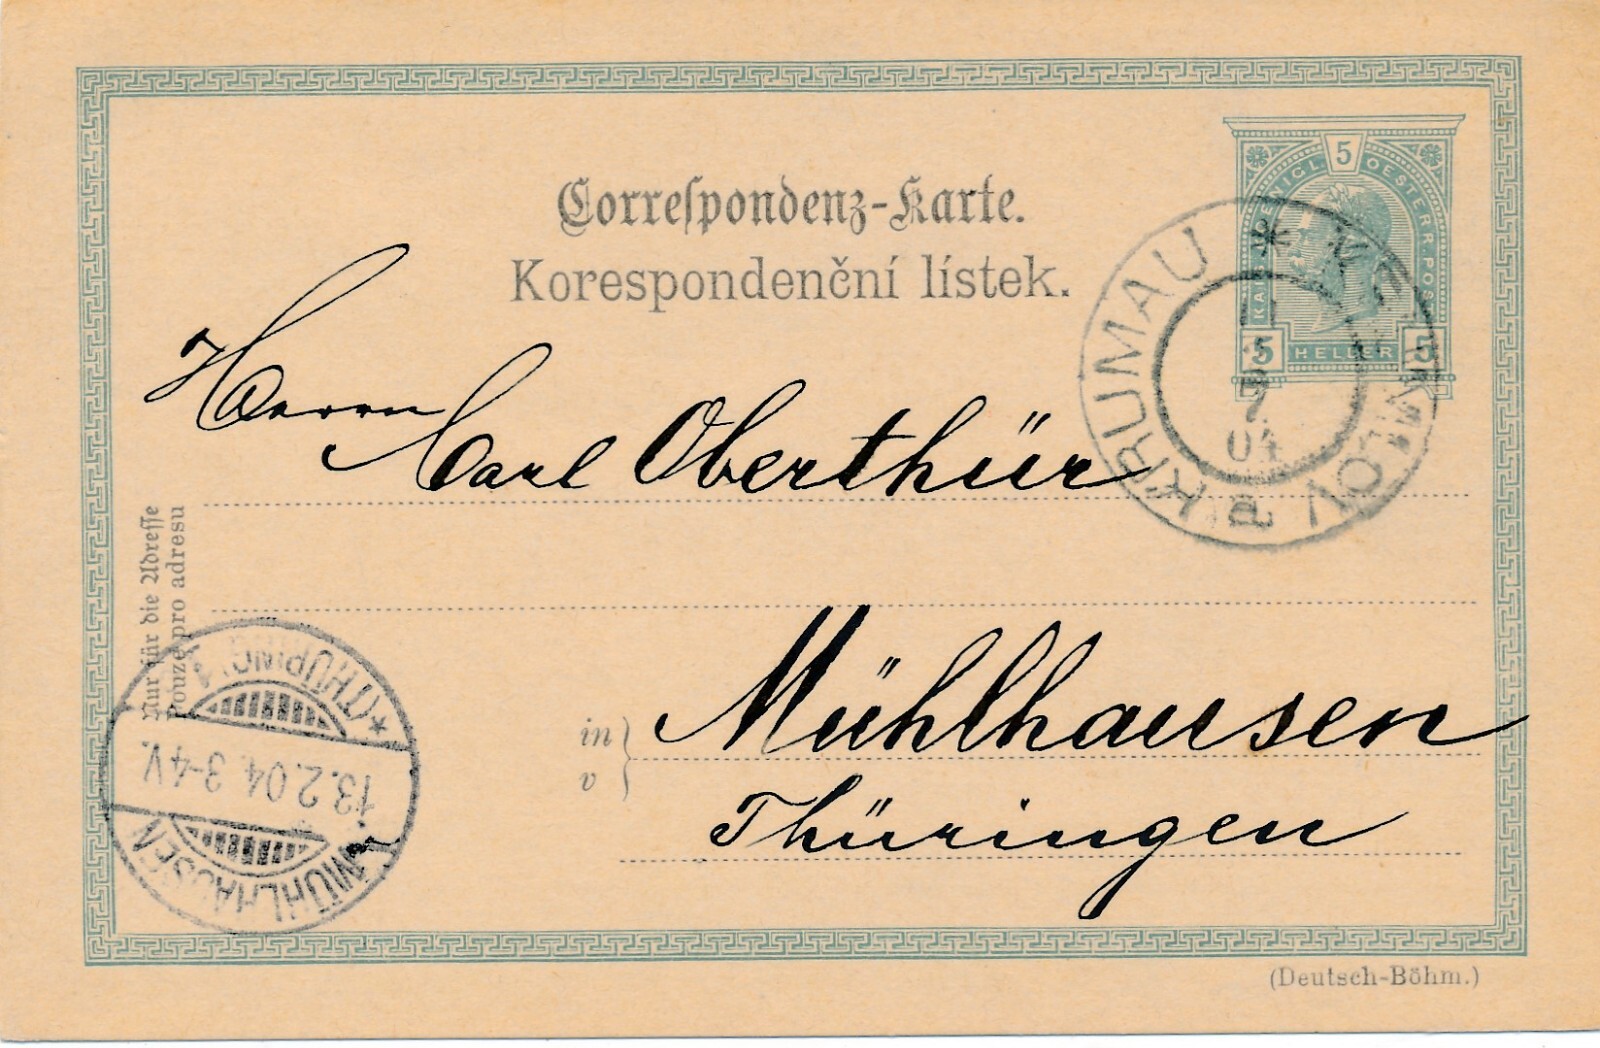 Correspondenz-Karte.
Korespondenční lístek.
KAIS. KOENIGL. OESTERR. POST
5
5 HELLER 5
KRUMAU
04
a
Herrn
Carl Oberthür
Nur für die Adresse
Pouze pro adresu
in
v
Mühlhausen
Thüringen
MÜHLHAUSEN
13.2.04. 3-4 V.
* (THÜRING.) 1
(Deutsch-Böhm.)